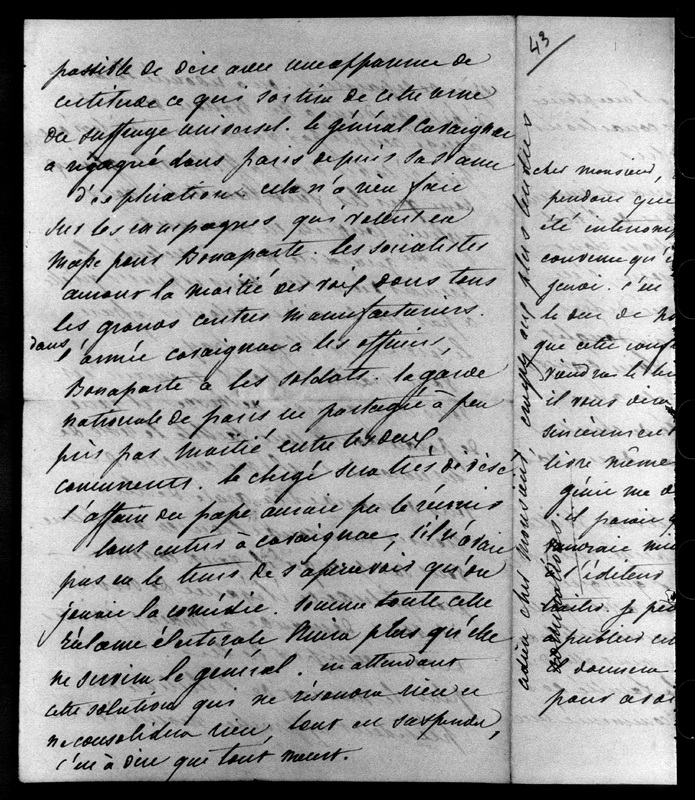 possible de dire avec une apparence de
certitude ce qui sortira de cette urne
du suffrage universel. le général Cavaignac
a regagné dans paris depuis sa séance
d'explications cela n'a rien fait
sur les campagnes qui voteront en
masse pour Bonaparte. les socialistes
auront la moitié des voix dans tous
les grands centres manufacturiers.
dans l'armée cavaignac a les officiers,
Bonaparte a les soldats. la garde
nationale de paris se partage à peu
près par moitié entre les deux
concurrents. le clergé sera très divisé
l'affaire du pape aurait pu le réunir
tout entier à cavaignac, s'il n'avait
pas eu le temps de s'apercevoir qu'on
jouait la comédie. somme toute cette
réclame électorale nuira plus qu'elle
ne servira le général. en attendant
cette solution qui ne résoudra rien et
ne consolidera rien, tout est suspendu,
c'est à dire que tout meurt.
43
cher monsieur,
pendant que
été interrom
convenu qu'
jeudi. c'est
le duc de
que cette
viendra le
il vous dira
sincèrement
livre même
génie me d
il parait q
l'éditeur
traiter. je
publier
donnera
pour
adieu cher monsieur croyez aux plus